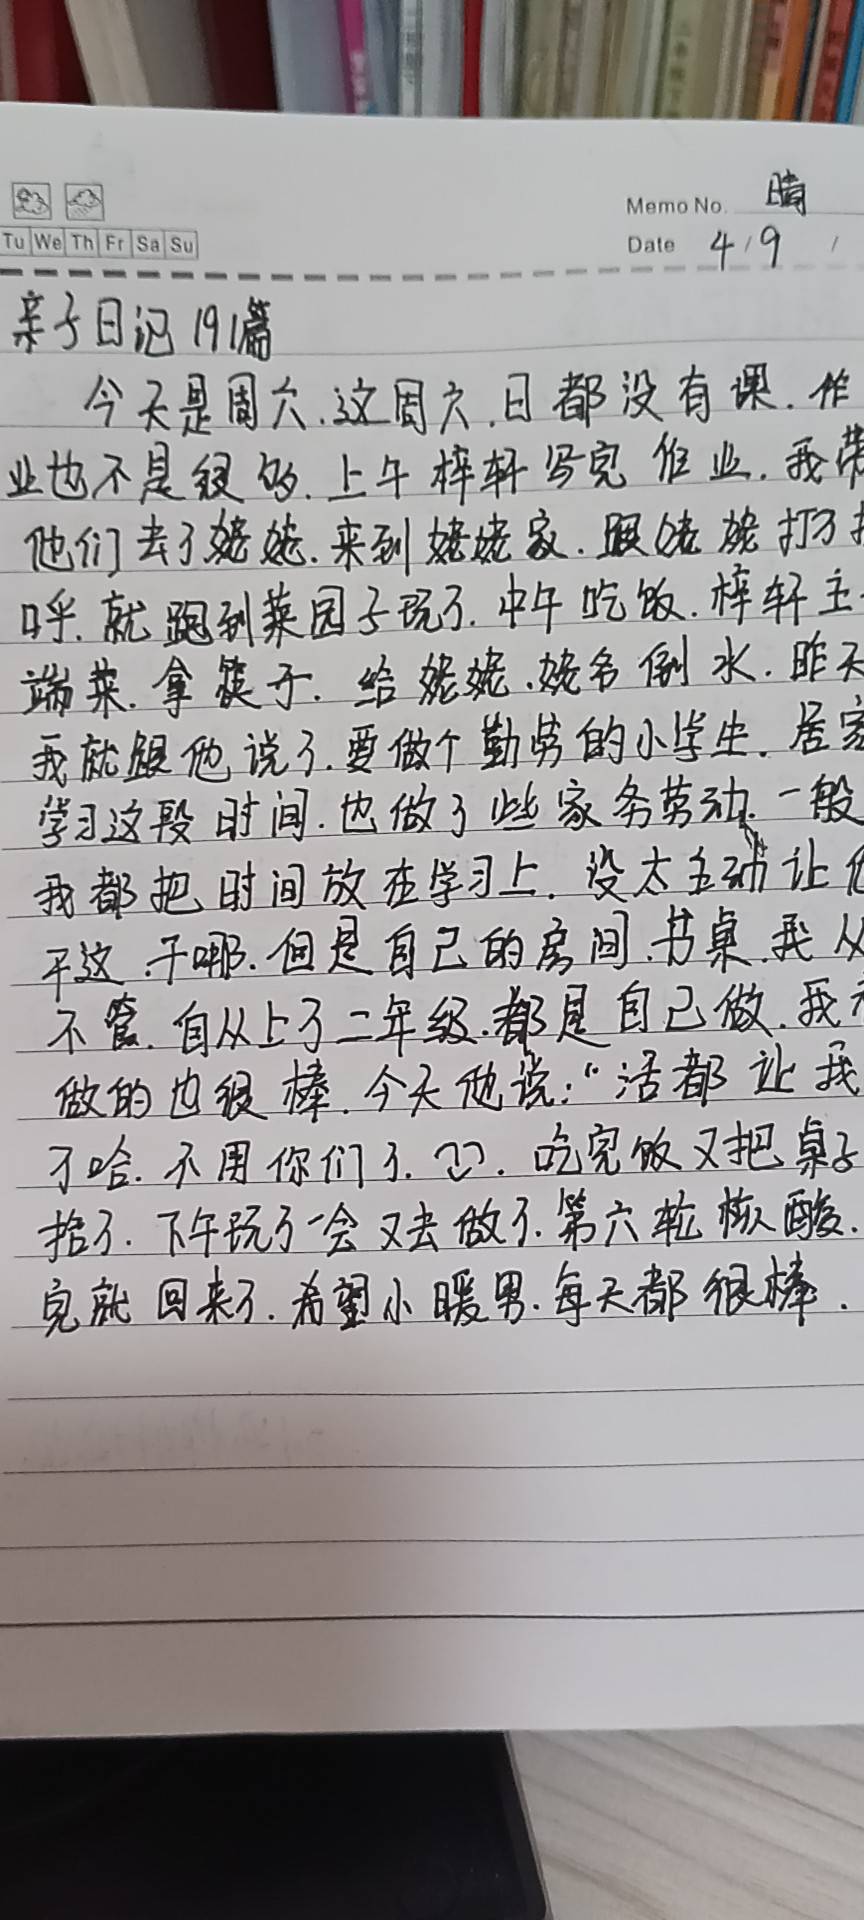 Memo No. 晴
Tu We Th Fr Sa Su
Date 4/9 /
亲子日记191篇
今天是周六.这周六.日都没有课.作
业也不是很多.上午梓轩写完作业.我带
他们去了姥姥.来到姥姥家.跟姥姥打了招
呼.就跑到菜园子玩了.中午吃饭.梓轩主
端菜.拿筷子.给姥姥.姥爷倒水.昨天
我就跟他说了.要做个勤劳的小学生.居家
学习这段时间.也做了些家务劳动.一般
我都把时间放在学习上.没太主动让他
干这.干哪.但是自己的房间.书桌.我从
不管.自从上了二年级.都是自己做.我
做的也很棒.今天他说:“活都让我
了哈.不用你们了.吃完饭又把桌子
拾了.下午玩了一会又去做了.第六轮核酸.
完就回来了.希望小暖男.每天都很棒.